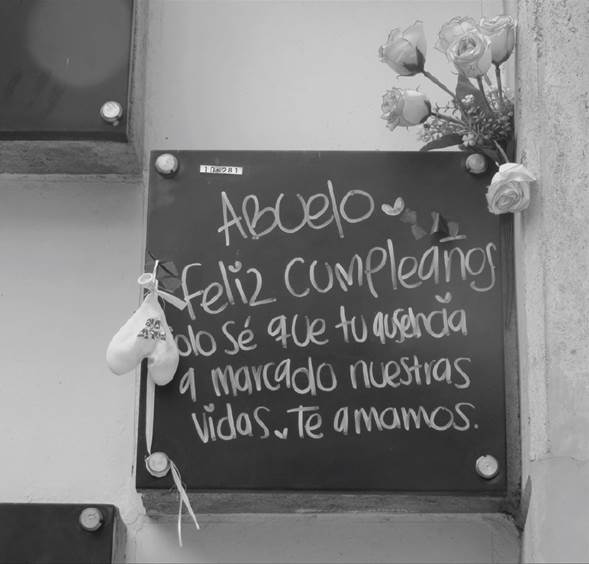 Abuelo
feliz cumpleaños
solo sé que tu ausencia
a marcado nuestras
vidas. Te amamos.